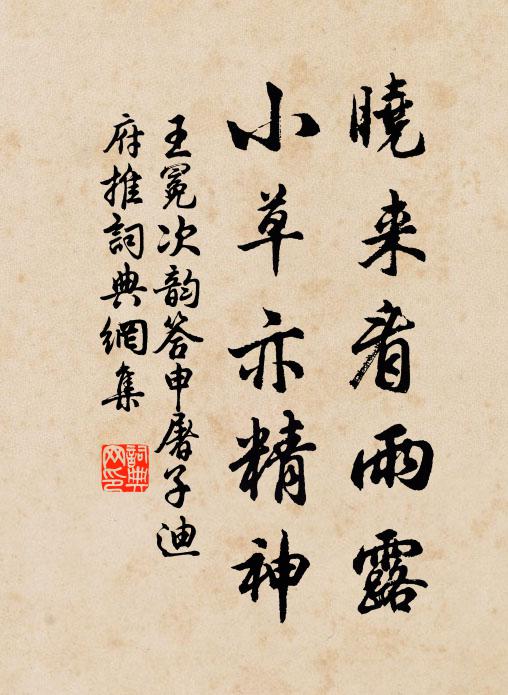 曉来看雨露
小草亦精神
王冕次韵答申屠子迪
府推詞典網集
詞典网印